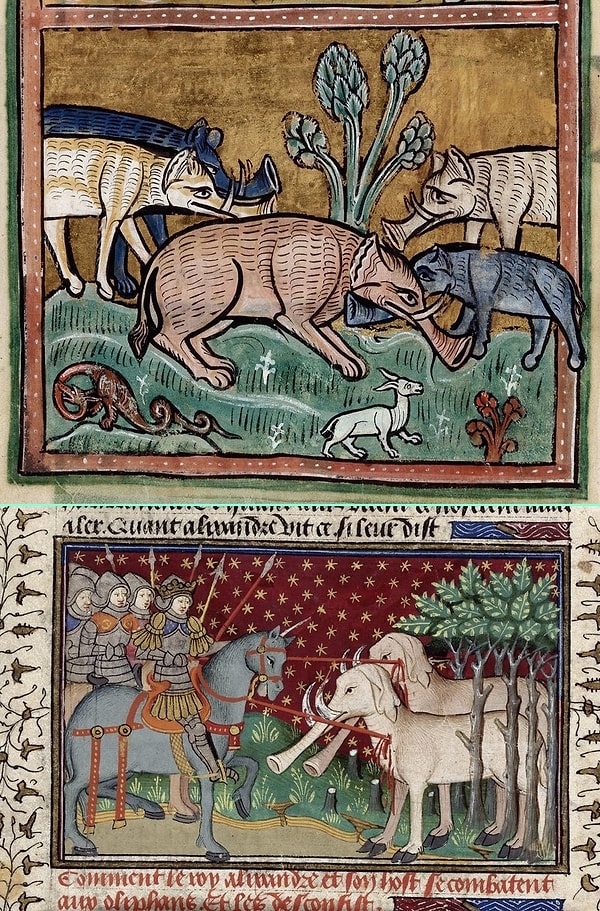 aler. Quant alixandre vit ce si leur dist
Comment le roy alixandre et son host se combatent
aux oliphans et les desconfist.